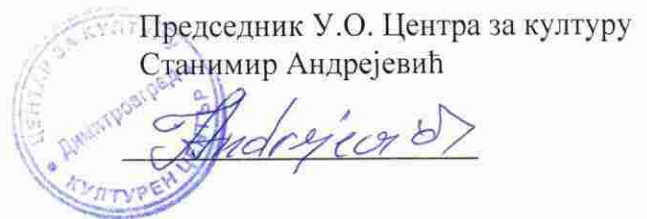 Председник У.О. Центра за културу
Станимир Андрејевић
ЦЕНТАР ЗА КУЛТУРУ
Димитровград
КУЛТУРЕН ЦЕНТЪР
Andrejević